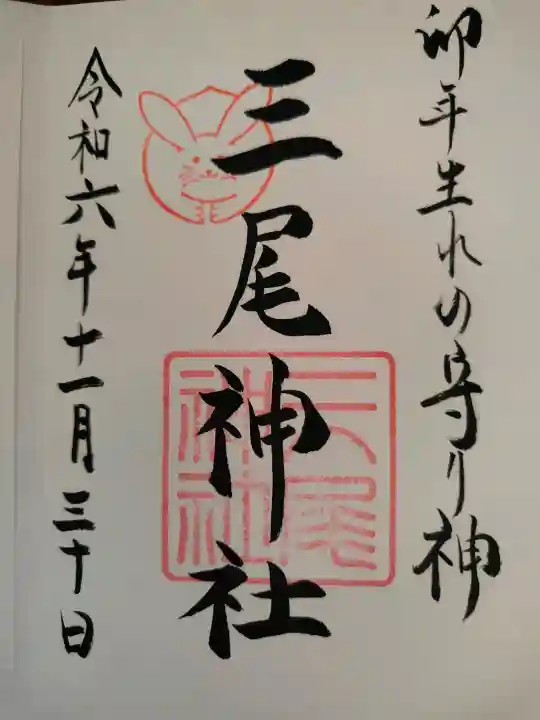 卯年生れの守り神
三尾神社
三尾神社
令和六年十一月三十日